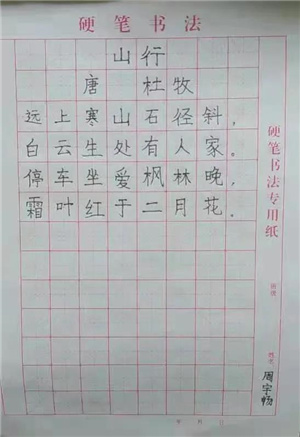 硬笔书法
山行
唐 杜牧
远上寒山石径斜，
白云生处有人家。
停车坐爱枫林晚，
霜叶红于二月花。
硬笔书法专用纸
班级
姓名
周宇畅
年 月 日